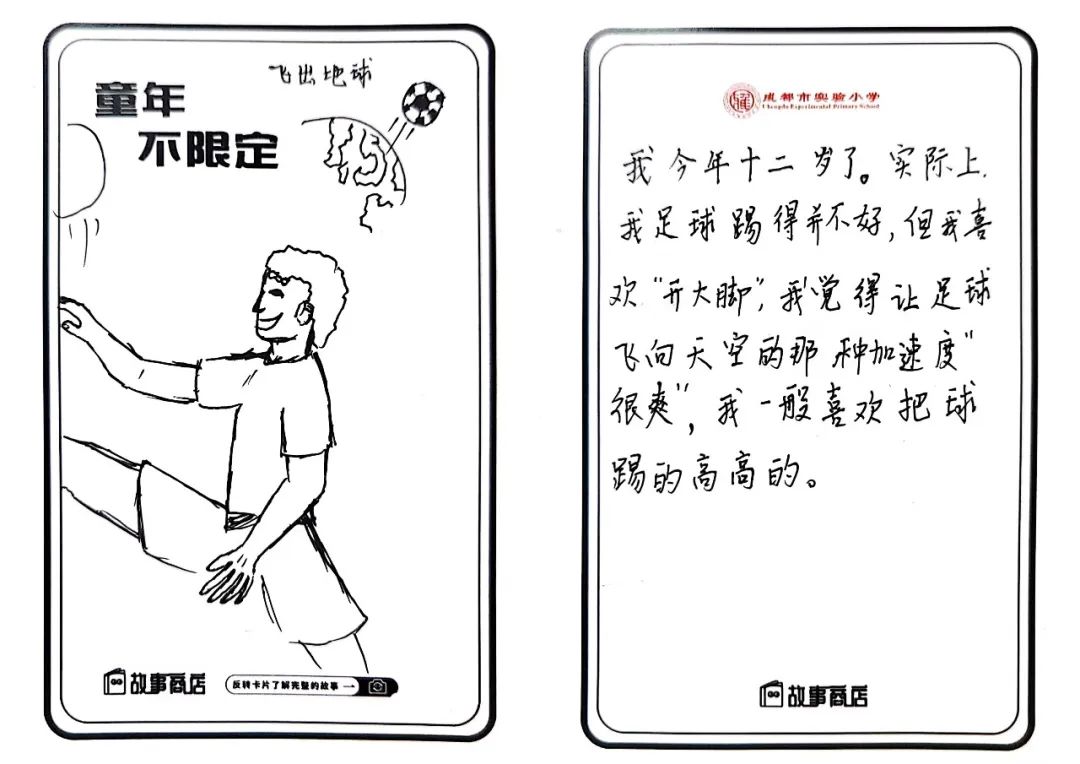 飞出地球
童年
不限定
故事商店
反转卡片了解完整的故事
成都市实验小学
Chengdu Experimental Primary School
我今年十二岁了。实际上,
我足球踢得并不好,但我喜
欢“开大脚”,我觉得让足球
飞向天空的那种加速度“
很爽”,我一般喜欢把球
踢的高高的。
故事商店